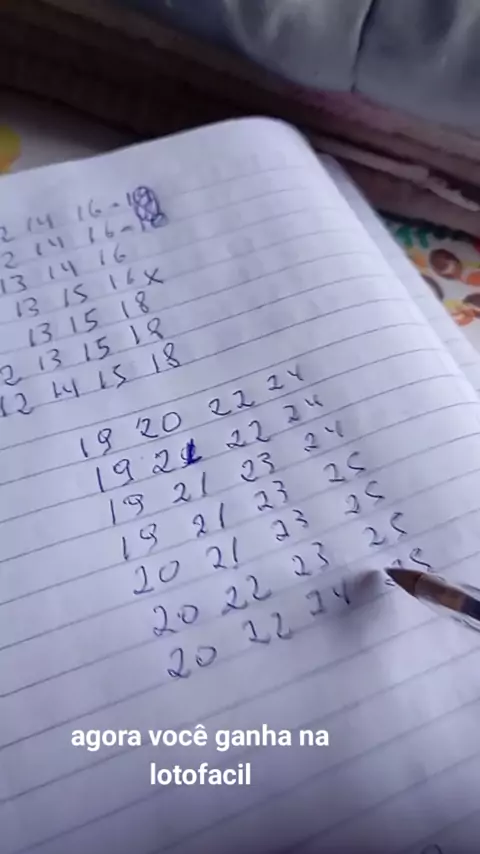 2 14 16-18
2 14 16-18
13 14 16
13 15 16x
13 15 18
2 13 15 18
12 14 15 18
19 20 22 24
19 21 22 24
19 21 23 24
19 21 23 25
20 21 23 25
20 22 23 25
20 22 24 25
agora você ganha na
lotofacil